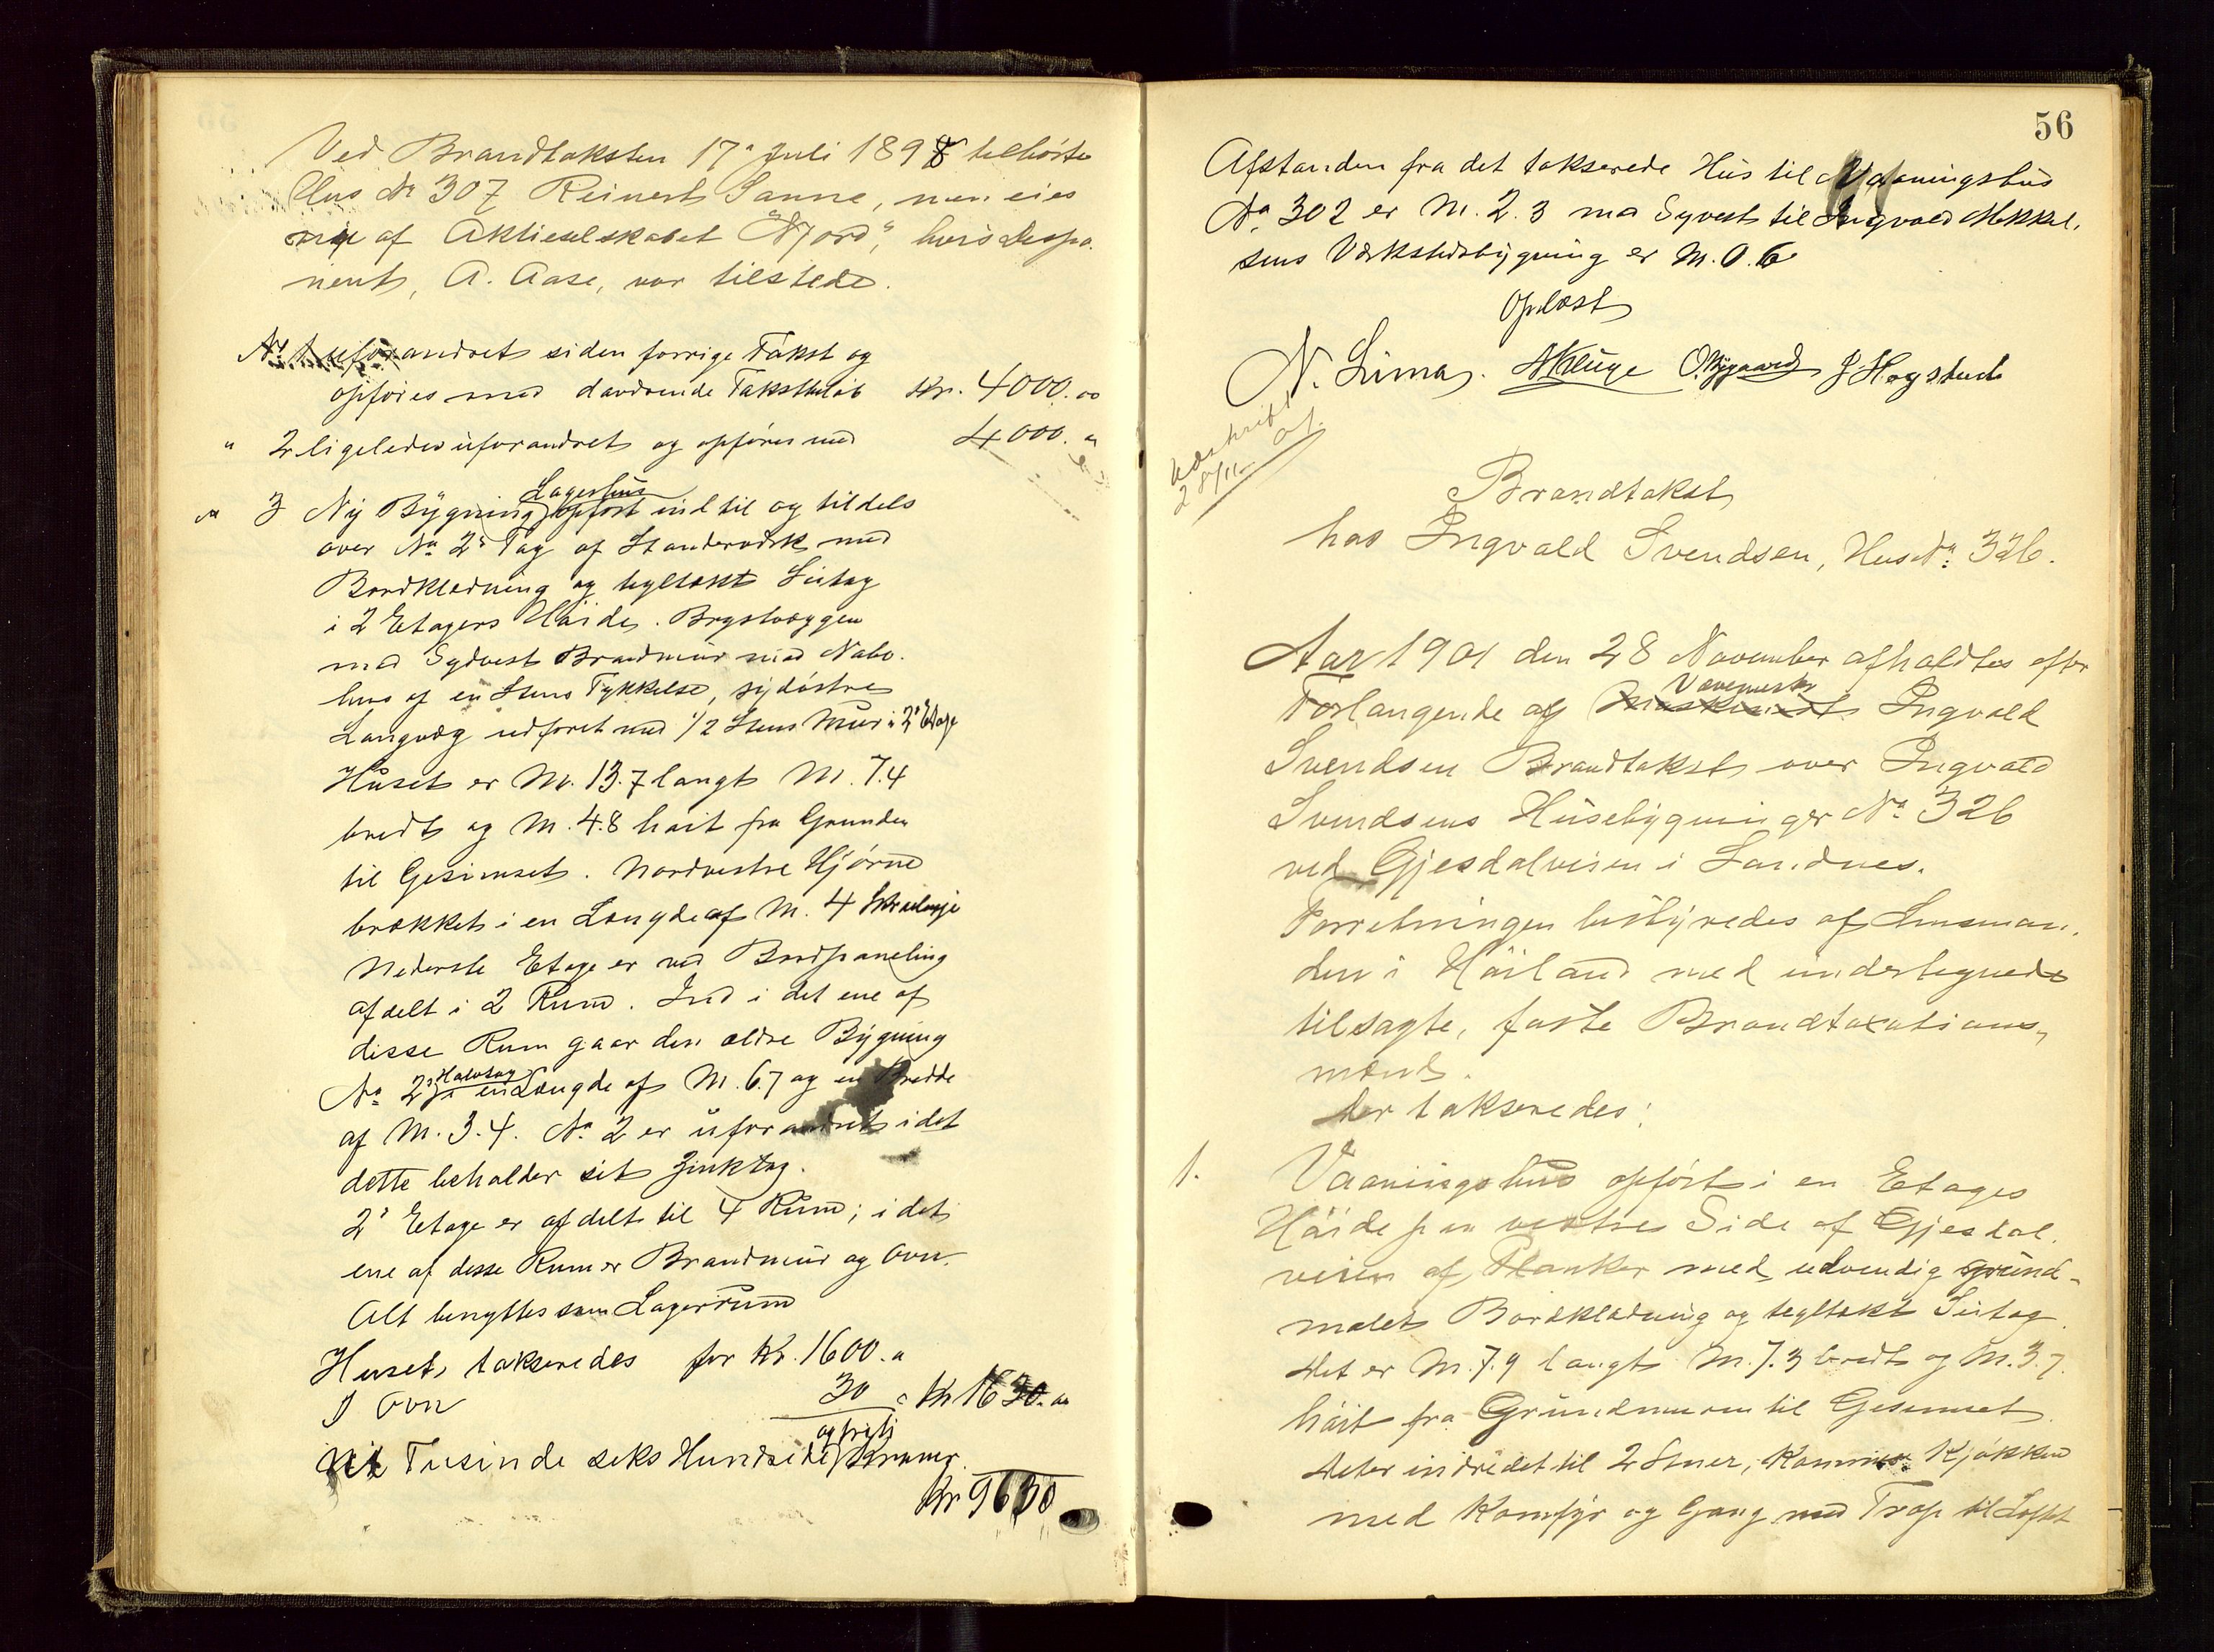 Ved Brandtaksten 17de Juli 1898 tilhørte
Hus No 307 Reinert Sanne, men eies
nu af Aktieselskabet "Njord", hvis Dispo-
nent, A. Aase, var tilstede.
No 1 uforandret siden forrige Takst og
opføres med daværende Takstbeløb Kr. 4000.00
" 2 ligeledes uforandret og opføres med 4000. "
" 3 Ny Bygning Lagerhus opført ind til og tildels
over No 2s Tag af Standerværk med
Bordklædning og tegltækt Sutag
i 2 Etagers Høide. Brystvæggen
mod Sydvest Brandmur mod Nabo-
hus af en Stens Tykkelse, sydøstre
Langvæg udforet med 1/2 Stens Mur i 2' Etage
Huset er M. 13.7 langt M. 7.4
bredt og M. 4.8 høit fra Grunden
til Gesimset. Nordvestre Hjørne
brækket i en Længde af M. 4
Nederste Etage er ved Bordpaneling
afdelt i 2 Rum. Ind i det ene af
disse Rum gaar den ældre Bygning
No 2s Halvtag i en Længde af M. 6.7 og en Bredde
af M. 3.4. No 2 er uforandret idet
dette beholder sit Zinktag.
2' Etage er afdelt til 4 Rum; i det
ene af disse Rum er Brandmur og Ovn.
Alt benyttes som Lagerrum
Huset takseredes for Kr. 1600. "
1 Ovn 30 " Kr 1630. "
Ni Tusinde seks Hundrede og treti Kroner.
Kr 9630
56
Afstanden fra det takserede Hus til Vaaningshus
No 302 er M. 2.3 mod Sydvest til Ingvald Mikkel-
sens Værkstedsbygning er M. 0.6
Oplæst
N. Lima. A Kluge O. Nygaard J Hogstad
Udskrift
af.
28/11
Brandtakst
hos Ingvald Svendsen, Hus No: 326.
Aar 1901 den 28 November afholdtes efter
Forlangende af Maskinist Vævemester Ingvald
Svendsen Brandtakst over Ingvald
Svendsens Husebygninger No 326
ved Gjesdalveien i Sandnes.
Forretningen bestyredes af Lensman-
den i Høiland med undertegnede
tilsagte, faste Brandtaxations-
mænd.
Der takseredes:
1. Vaaningshus opført i en Etages
Høide paa vestre Side af Gjesdal-
veien af Planker med udvendig grund-
malet Bordklædning og tegltækt Sutag.
Det er M. 7.9 langt M. 7.3 bredt og M. 3.7
høit fra Grundmuren til Gesimset.
Det er indredet til 2 Stuer, Kammer Kjøkken
med Komfyr og Gang med Trap til Loftet